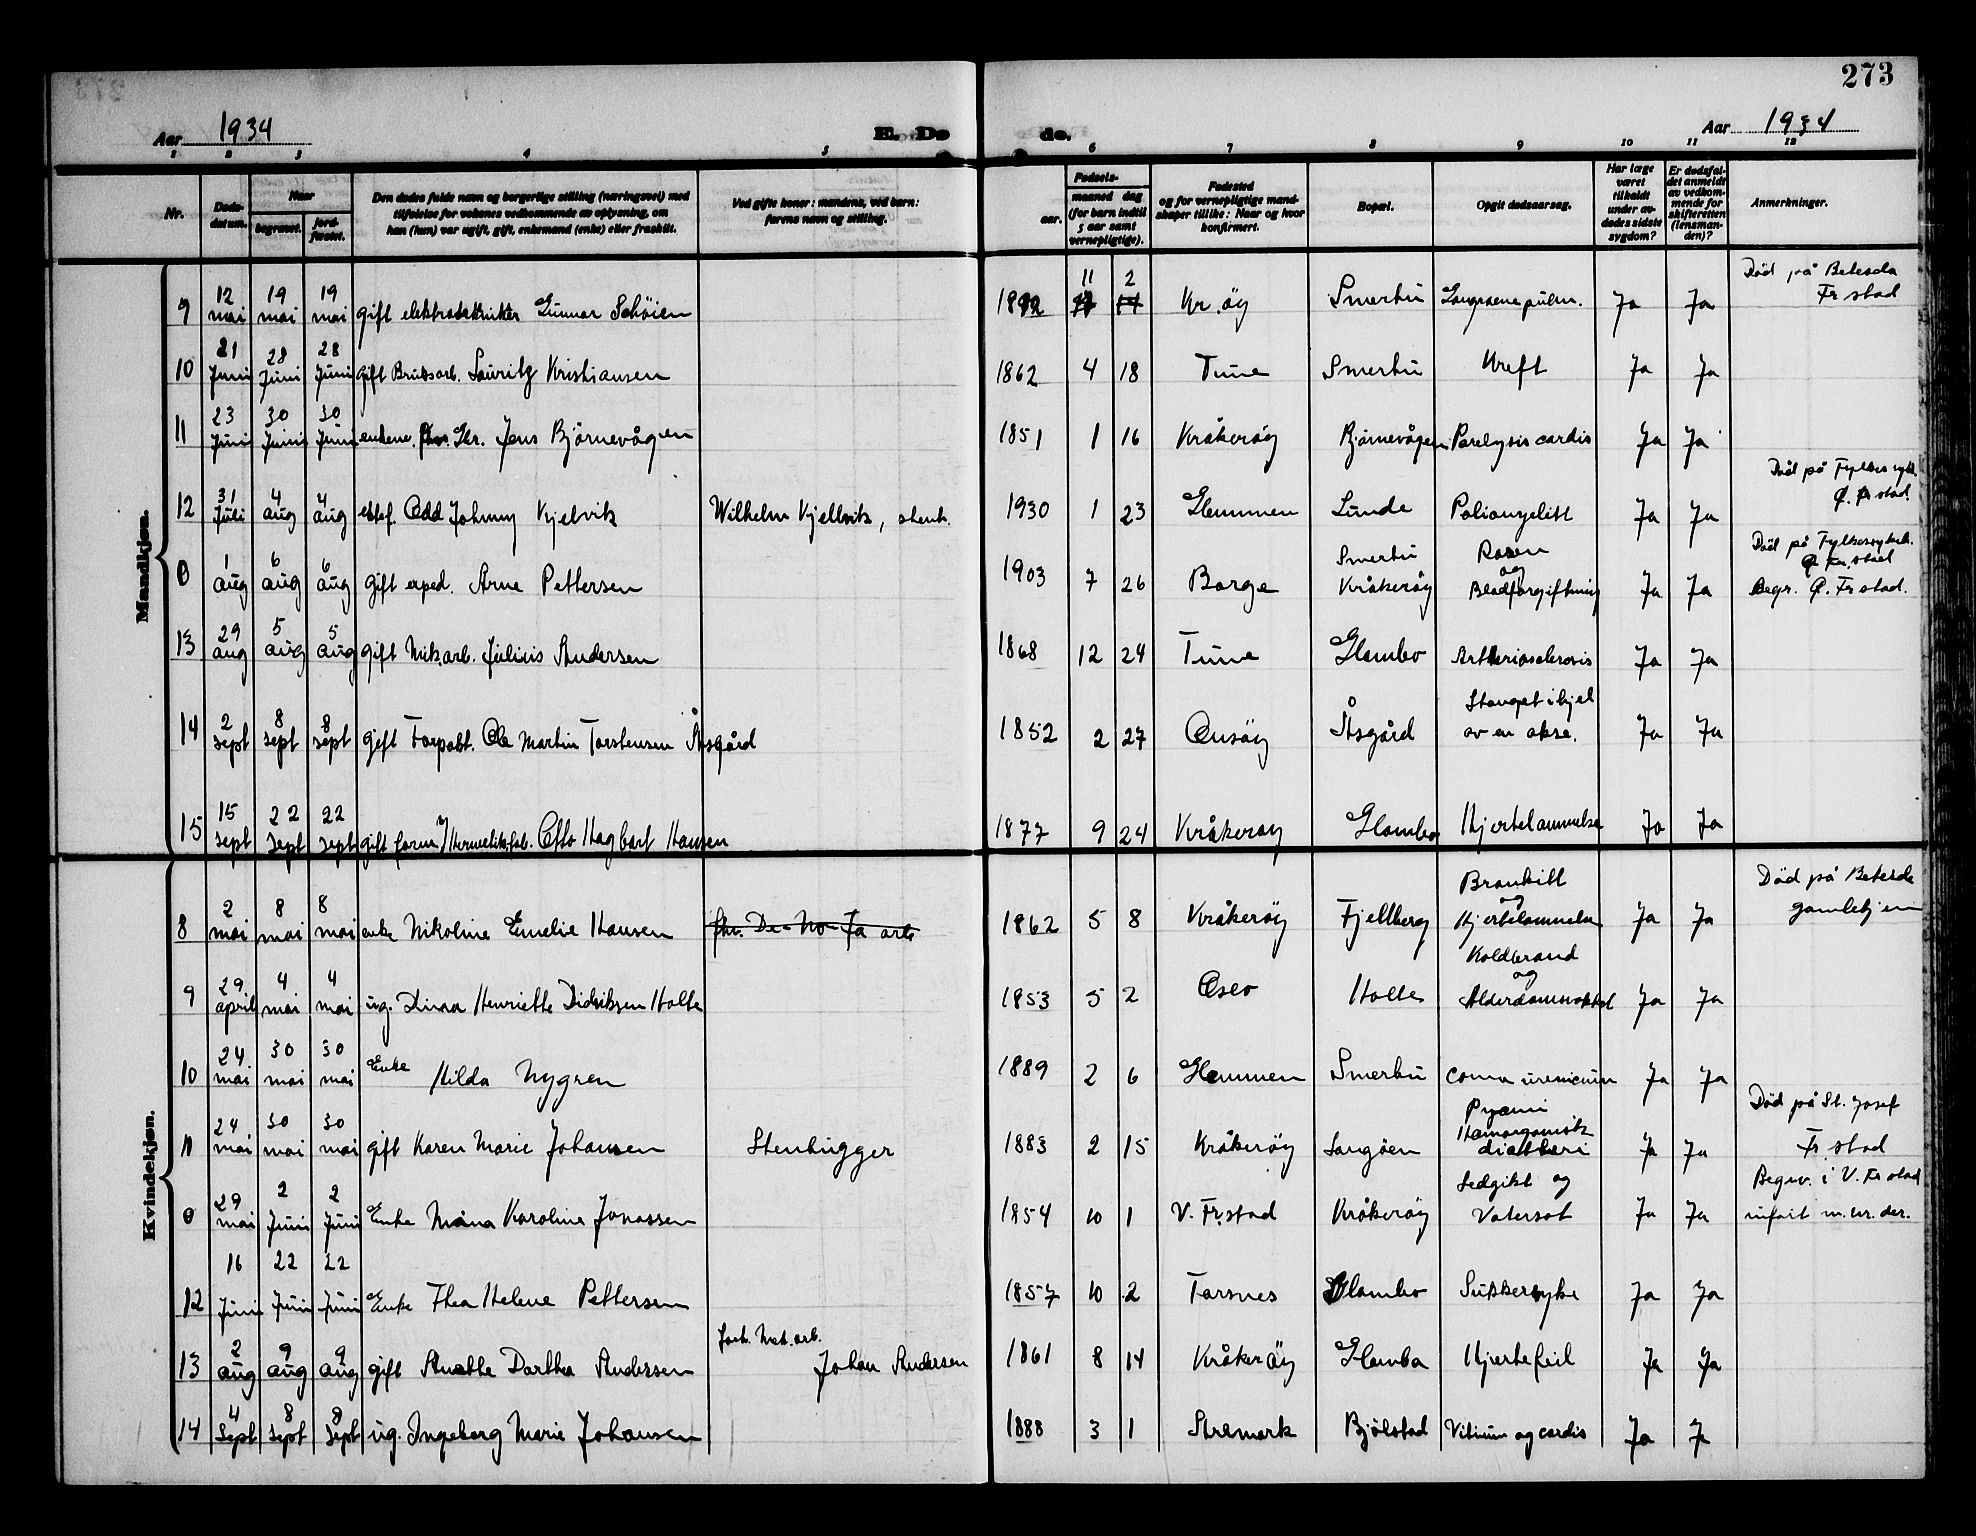 273
Aar 1934 E. Dø de. Aar 1934
1 2 3 4 5 6 7 8 9 10 11 12
Nr. Døds-datum. Naar begravet. jord-fæstet. Den dødes fulde navn og borgerlige stilling (næringsvei) med tilføielse for voksnes vedkommende av oplysning, om han (hun) var ugift, gift, enkemand (enke) eller fraskilt. Ved gifte koner: mandens, ved barn: farens navn og stilling. Fødsels- aar. maaned dag (for barn indtil 5 aar samt vernepligtige). Fødested og for vernepligtige mand-skaper tillike: Naar og hvor konfirmert. Bopæl. Opgit dødsaarsag. Har læge været tilkaldt under av-dødes sidste sygdom? Er dødsfal-det anmeldt av vedkom-mende for skifteretten (lensman-den)? Anmerkninger.
Mandkjøn.
9 12 mai 19 mai 19 mai gift Gunnar Schöien 1892 11 2 Kr.öy Smertu pulm. Ja Ja Död på Betesda Fr stad
10 21 Juni 28 Juni 28 Juni gift Bruksarb. Lauritz Kristiansen 1862 4 18 Tune Smertu Kreft Ja Ja
11 23 Juni 30 Juni 30 Juni Jens Björnevågen 1851 1 16 Kråkeröy Björnevågen Paralysis cardis Ja Ja
12 31 Juli 4 aug 4 aug Odd Johnny Kjelvik Wilhelm Kjellvik, stenh. 1930 1 23 Glemmen Lunde Ja Ja Död på Fylkes syk. Ö. Fr stad.
0 1 aug 6 aug 6 aug gift exped. Arne Pettersen 1903 7 26 Borge Smertu Kråkeröy Rosen og Blodforgiftning Ja Ja Död på Fylkessykeh. Ö. Fr. stad Begr. Ö. Fr stad.
13 29 aug 5 aug 5 aug gift Mek.arb. Julius Andersen 1868 12 24 Tune Glombo Artheriosclerosis Ja Ja
14 2 sept 8 sept 8 sept gift Forpakt. Ole Martin Torstensen Åsgård 1852 2 27 Onsöy Åsgård Stanget ihjel av en okse. Ja Ja
15 15 sept 22 sept 22 sept gift Otto Hagbart Hansen 1877 9 24 Kråkeröy Glombo Hjertelammelse Ja Ja
Kvindekjøn.
8 2 mai 8 mai 8 mai enke Nikoline Emelie Hansen 1862 5 8 Kråkeröy Fjellberg Bronkitt og Hjertelammelse Ja Ja Död på Betesda gamlehjem
9 29 april 4 mai 4 mai ug. Dina Henriette Didriksen Holte 1853 5 2 Oslo Holte Koldbrand og Ja Ja
10 24 mai 30 mai 30 mai Enke Hilda Nygren 1889 2 6 Glemmen Smertu coma uremicum Ja Ja
11 24 mai 30 mai 30 mai gift Karen Marie Johansen Stenhugger 1883 2 15 Kråkeröy Langöen Pyæmi Ja Ja Död på St. Josef Fr. stad
0 29 mai 2 Juni 2 Juni Enke Karoline Jonassen 1854 10 1 V. Fr.stad Kråkeröy Ledgikt og Vatersot Ja Ja Begrv. i V. Fr stad
12 16 Juni 22 Juni 22 Juni Enke Thea Helene Pettersen 1857 10 2 Torsnes Glombo Sukkersyke Ja Ja
13 2 aug 9 aug 9 aug gift Anette Dorthea Andersen Forh. Mek.arb. Johan Andersen 1861 8 14 Kråkeröy Glombo Hjertefeil Ja Ja
14 4 sept 8 sept 8 sept ug. Ingeborg Marie Johansen 1888 3 1 Strømork Bjölstad Vitium og cordis Ja Ja